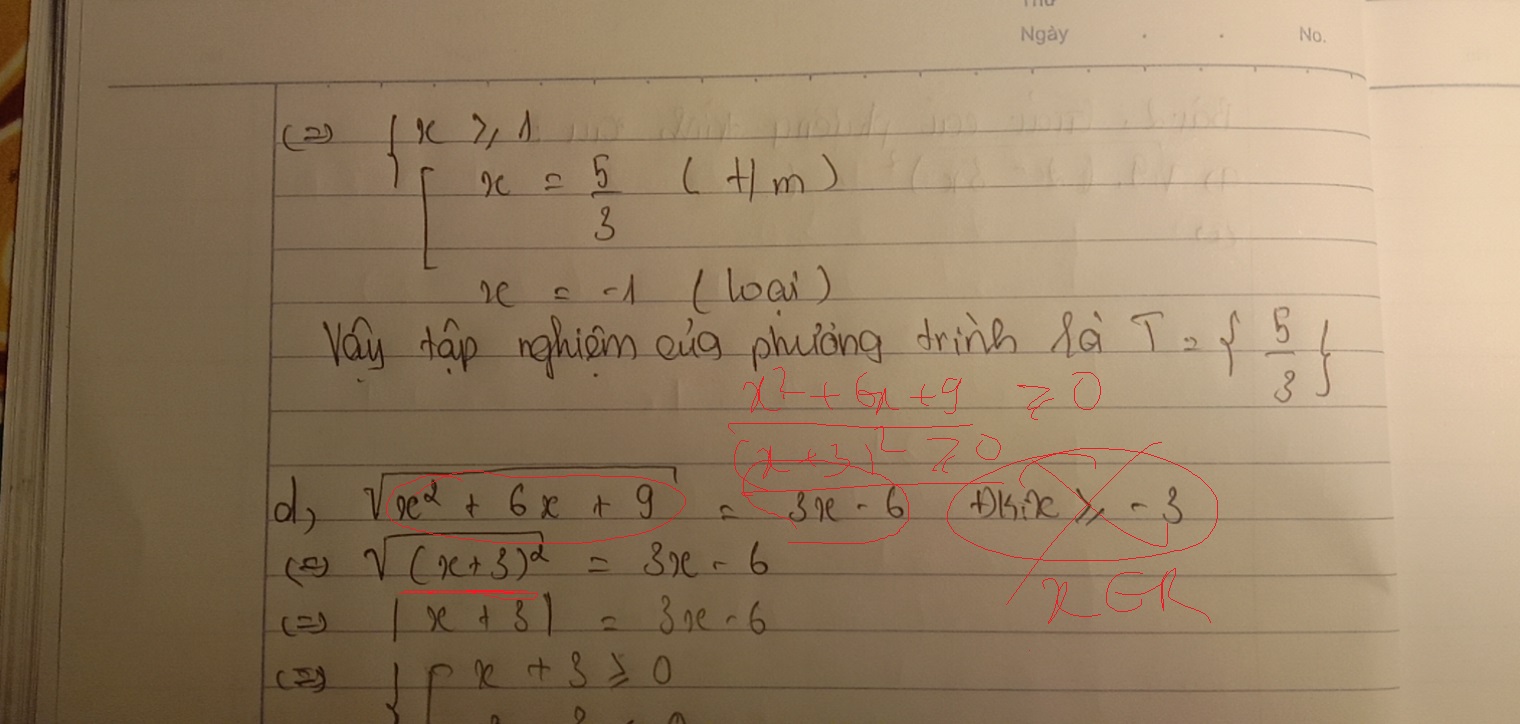 Thứ
Ngày . . No.
(=) { x ⩾ 1
[ x = 5/3 (t/m)
x = -1 (loại)
Vậy tập nghiệm của phương trình là T = { 5/3 }
x² + 6x + 9 ⩾ 0
(x+3)² ⩾ 0
d, √(x² + 6x + 9) = 3x - 6 ĐK: x ⩾ -3
(=) √((x+3)²) = 3x - 6
x ∈ R
(=) |x + 3| = 3x - 6
(=) { [ x + 3 ⩾ 0